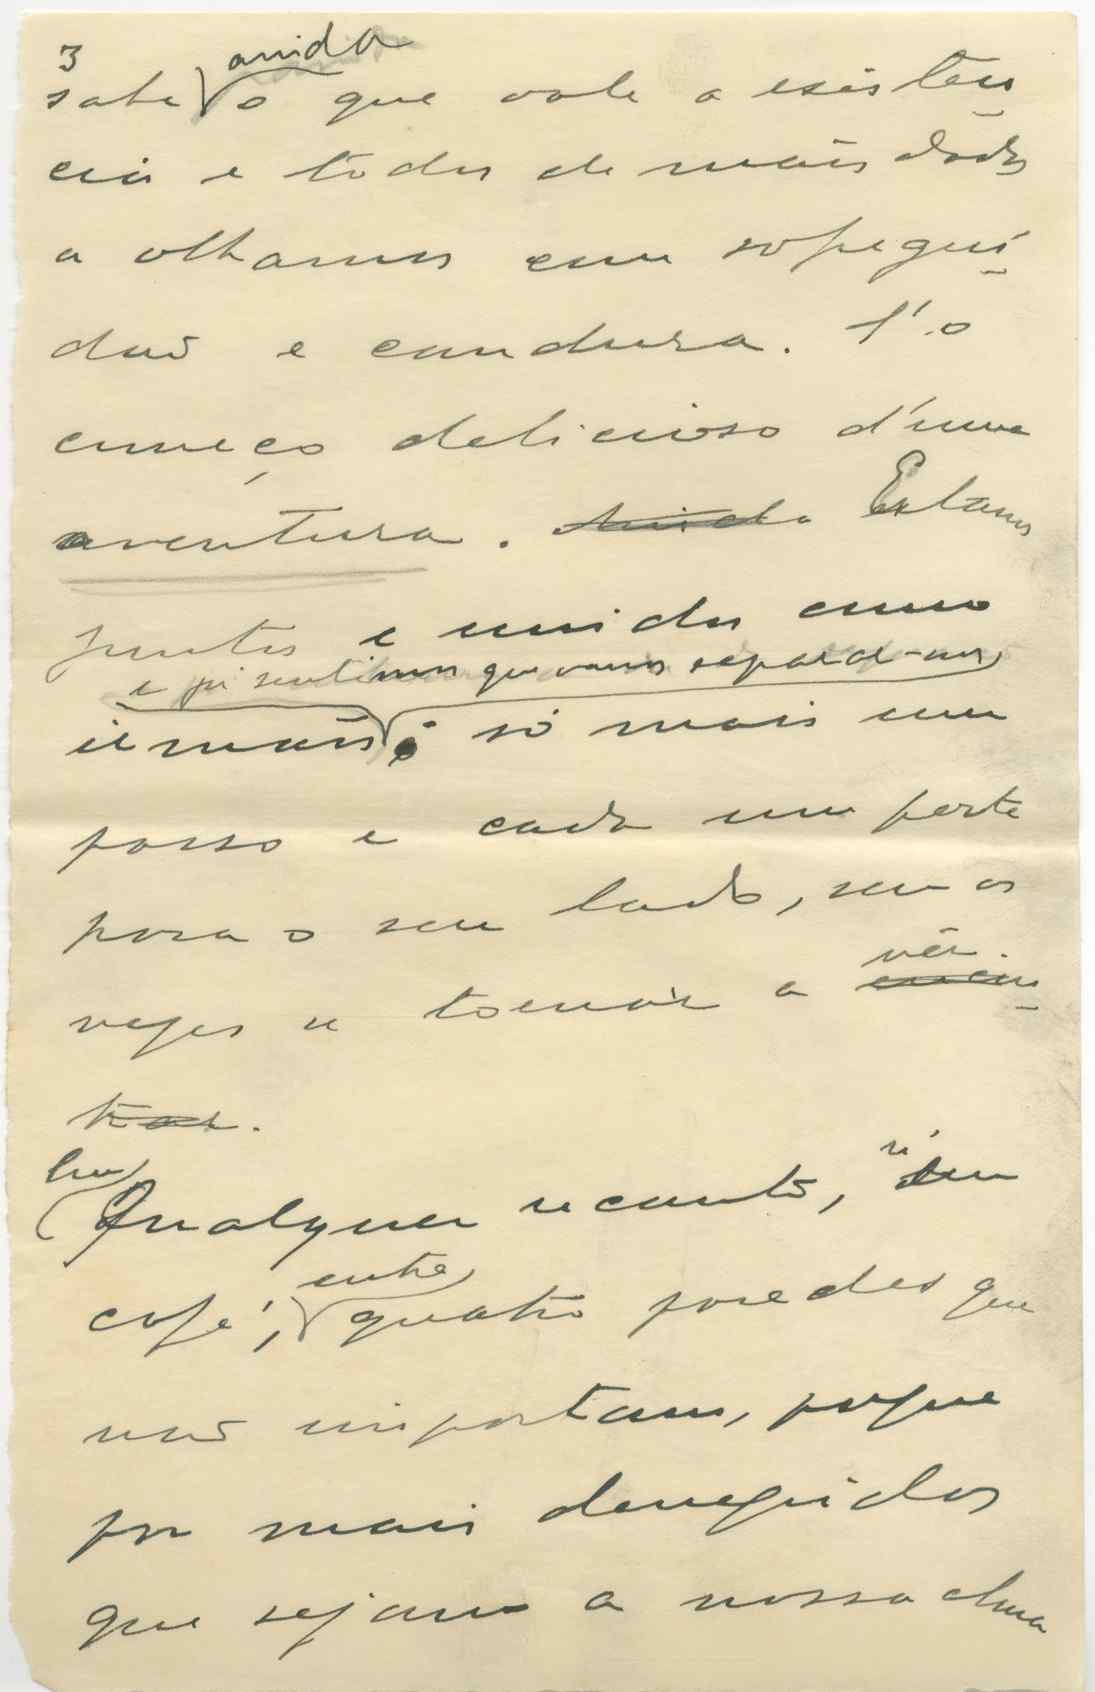 3
ainda
sabe o que vale a existen-
cia e todos de mãos dadas
a olhamos com sofregui-
dão e candura. É o
começo delicioso d'uma
aventura. Ainda Estamos
juntos e unidos como
e já sentimos que vamos separar-nos
irmãos; só mais um
passo e cada um parte
para o seu lado, sem as
vezes se tornar a encon-
vêr.
trar.
Um
Qualquer recanto, um
café, entre quatro paredes que
não importam, porque
por mais denegridas
que sejam a nossa alma